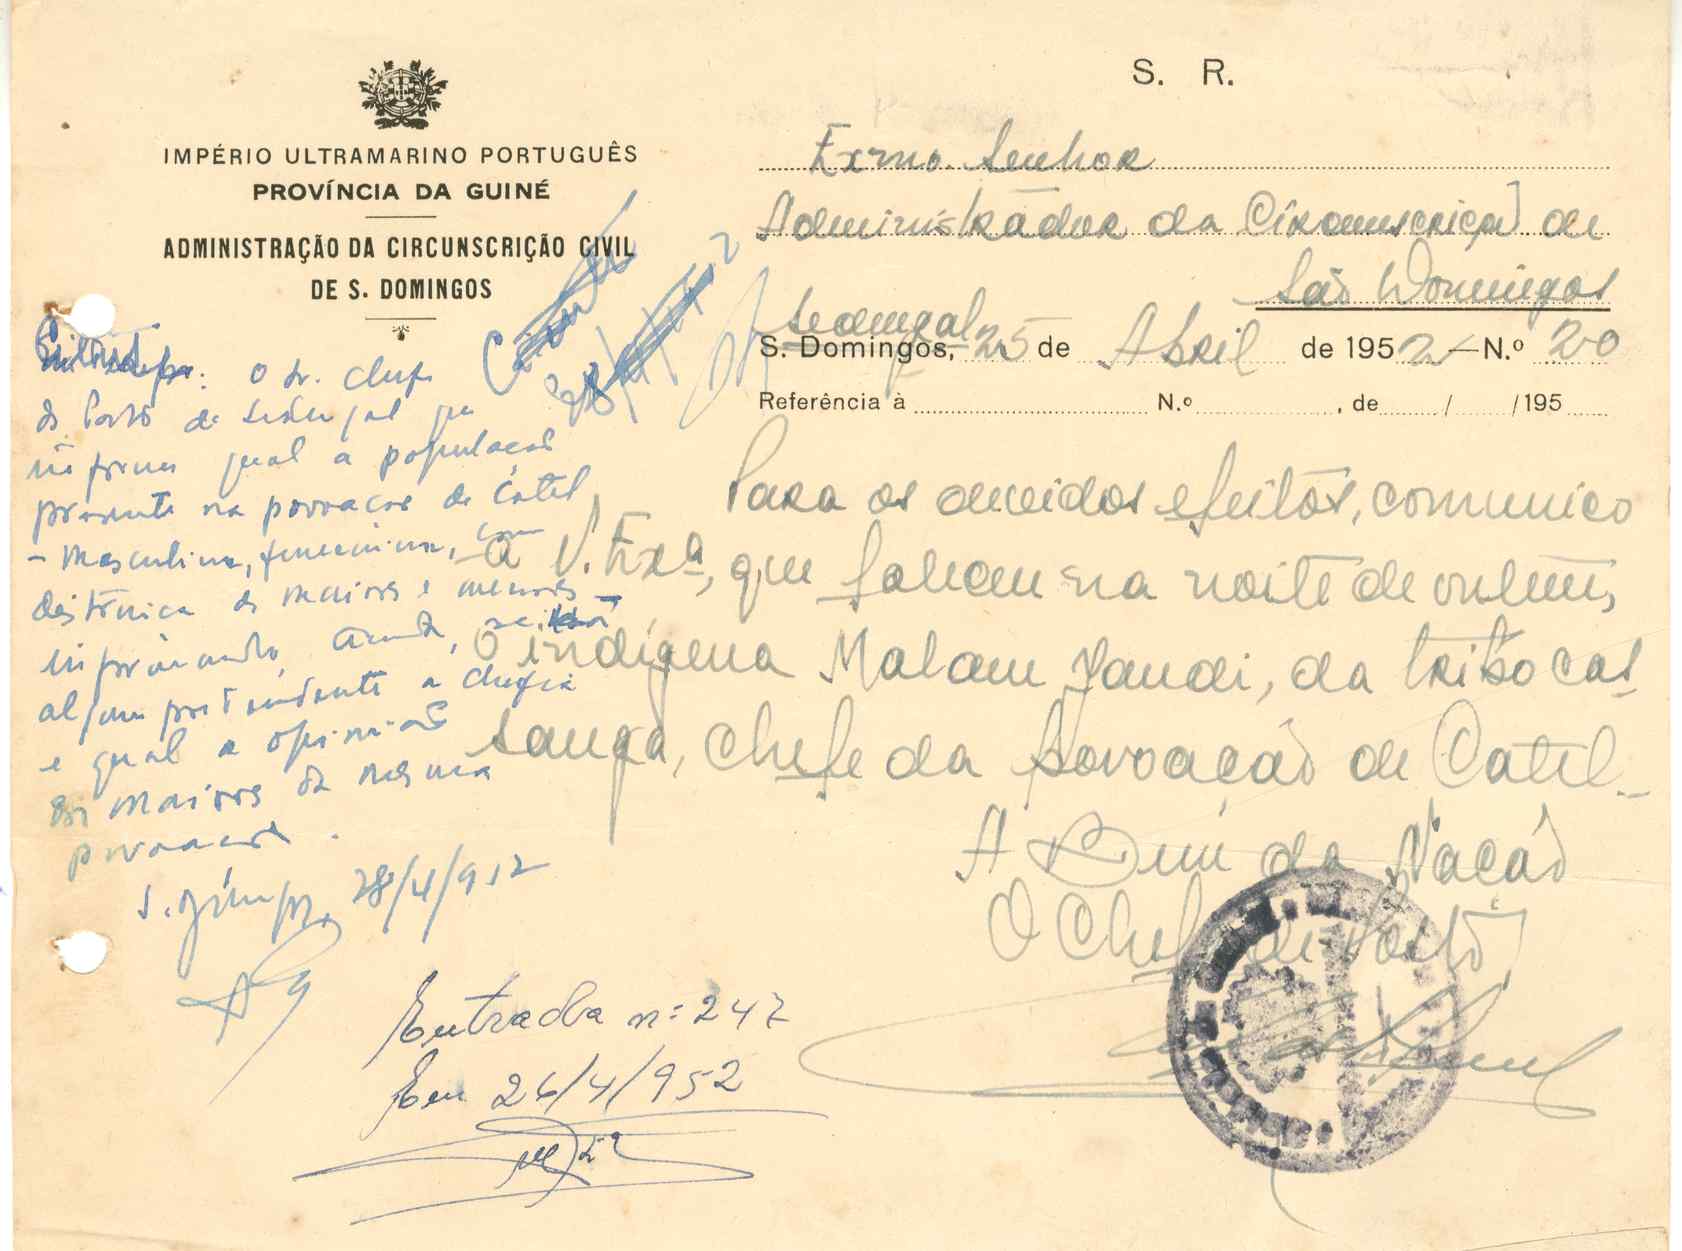 S. R.
IMPÉRIO ULTRAMARINO PORTUGUÊS
PROVÍNCIA DA GUINÉ
ADMINISTRAÇÃO DA CIRCUNSCRIÇÃO CIVIL
DE S. DOMINGOS
Exmo. Senhor
Administrador da Circunscrição de
São Domingos
Sedengal
S. Domingos, 25 de Abril de 1952 — N.º 20
Referência à N.º , de / /195
Para os devidos efeitos, comunico
a V. Exª, que faleceu na noite de ontem,
o indígena Malam Jandi, da tribo cas
sanga, chefe da povoação de Catel.
A Bem da Nação
O Chefe de Posto,
o sr. chefe
do Posto de Sedengal que
informe qual a população
presente na povoação de Catel
- masculina, feminina, com
destrinça de maiores e menores -
informando, ainda, se
algum pretendente a chefia
e qual a opinião
dos maiores da mesma
povoação.
S. Domingos, 28/4/952
Entrada nº 247
Em 26/4/952